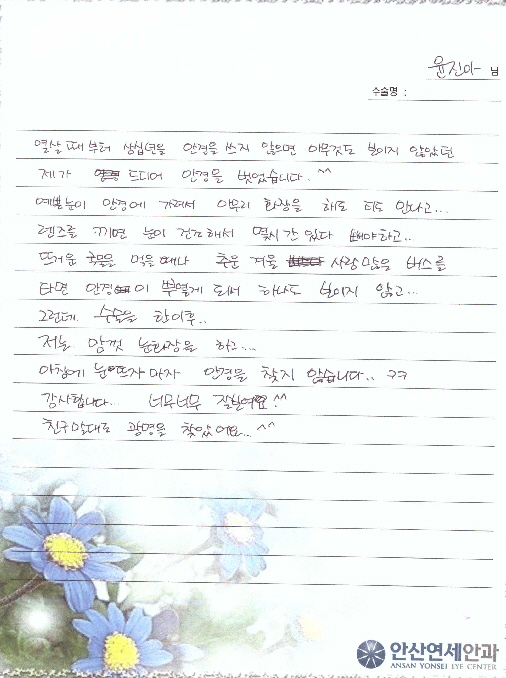 윤진아 님
수술명 :
열살때부터 삼십년을 안경을 쓰지 않으면 아무것도 보이지 않았던
제가 드디어 안경을 벗었습니다.. ^^
예쁜눈이 안경에 가려서 아무리 화장을 해도 티도 안나고...
렌즈를 끼면 눈이 건조해서 몇시간 있다 빼야하고..
뜨거운 국물을 먹을때나 추운 겨울 사람많은 버스를
타면 안경이 뿌옇게 되서 하나도 보이지 않고...
그런데 수술을 한이후..
저는 맘껏 눈화장을 하고...
아침에 눈뜨자마자 안경을 찾지 않습니다.. ㅋㅋ
감사합니다... 너무너무 잘한거예요!^^
친구말대로 광명을 찾았어요... ^^
안산연세안과
ANSAN YONSEI EYE CENTER